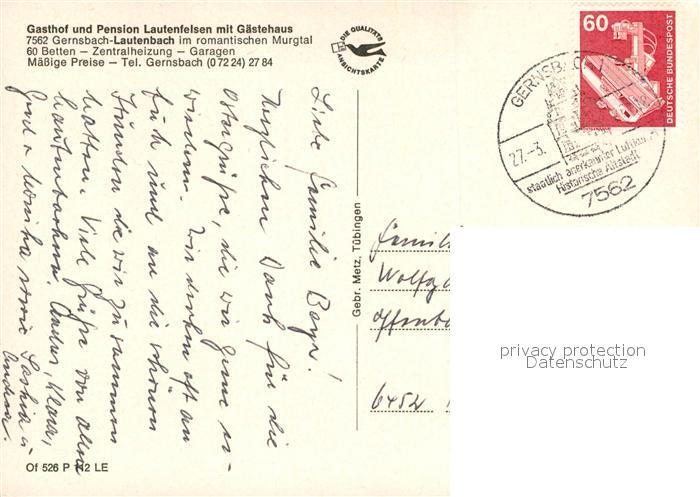 Gasthof und Pension Lautenfelsen mit Gästehaus
7562 Gernsbach-Lautenbach im romantischen Murgtal
60 Betten – Zentralheizung – Garagen
Mäßige Preise – Tel. Gernsbach (0 72 24) 27 84
DIE QUALITÄTS
ANSICHTSKARTE
60
DEUTSCHE BUNDESPOST
GERNSBACH
27.-3.
staatlich anerkannter Luftkur
Historische Altstadt
7562
Liebe Familie Bayr!
Herzlichen Dank für die
Ostergrüße, die wir gerne er-
wiedern. Wir denken oft an
Euch und an die schönen
Stunden die wir zusammen
hatten. Viele Grüße von allen
Lautenbachern.
Gerd + Monika sowie Saskia u.
Andrea.
Gebr. Metz, Tübingen
Famili
Wolfg
Offenb
6452
Of 526 P 112 LE
privacy protection
Datenschutz